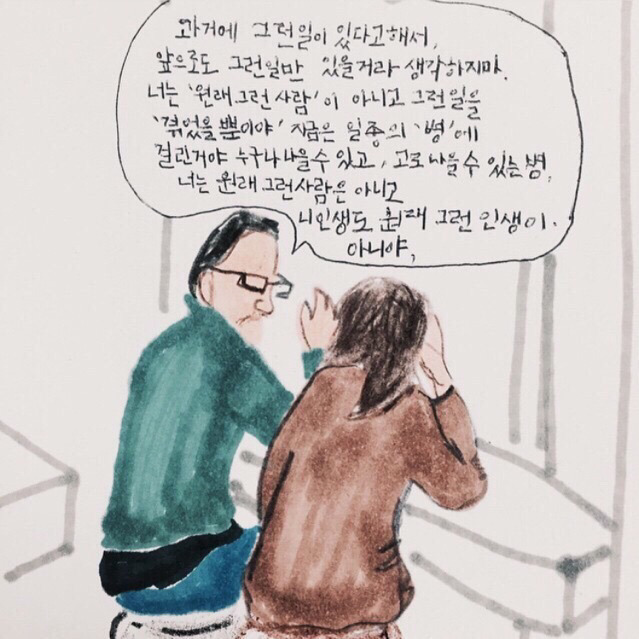 과거에 그런일이 있다고해서,
앞으로도 그런일만 있을거라 생각하지마.
너는 '원래 그런 사람'이 아니고 그런일을
'겪었을 뿐이야' 지금은 일종의 '병'에
걸린거야 누구나 나을 수 있고, 고로 나을 수 있는 병,
너는 원래 그런사람은 아니고
니인생도 원래 그런 인생이.
아니야,